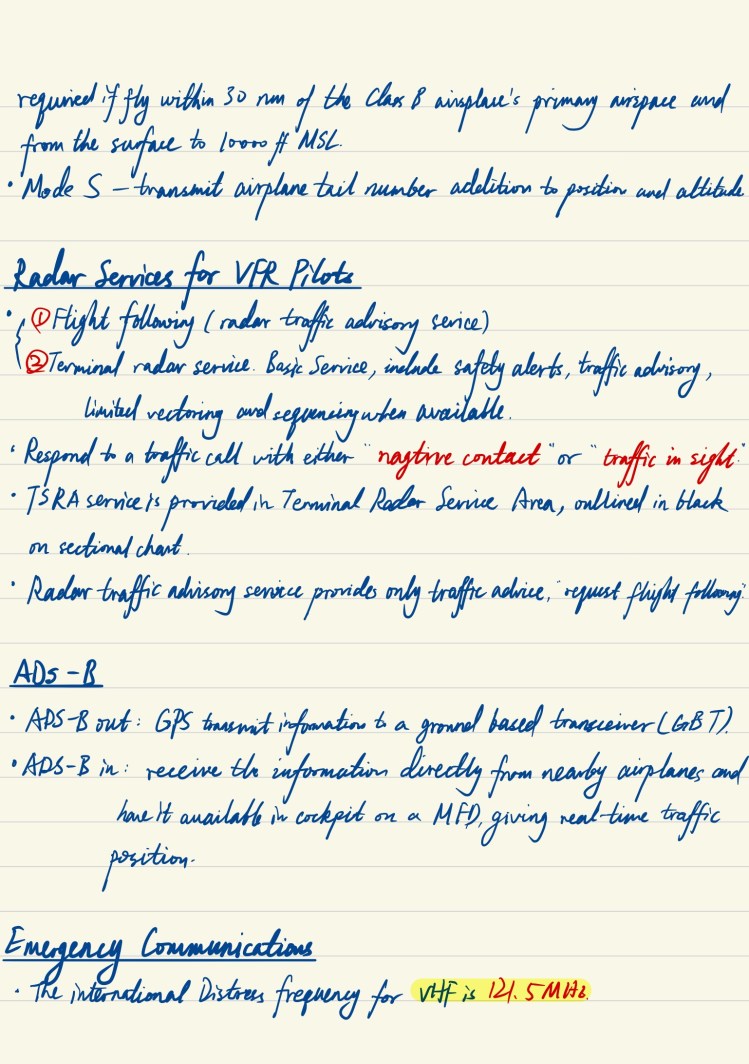 required if fly within 30 nm of the Class B airplace's primary airspace and
from the surface to 10000 ft MSL.
· Mode S – transmit airplane tail number addition to position and altitude
Radar Services for VFR Pilots
· ① Flight following (radar traffic advisory service)
② Terminal radar service. Basic Service, include safety alerts, traffic advisory,
limited vectoring and sequencing when available.
· Respond to a traffic call with either "nagtive contact" or "traffic in sight".
· TSRA service is provided in Terminal Radar Service Area, outlined in black
on sectional chart.
· Radar traffic advisory service provides only traffic advice, "request flight following".
ADS-B
· ADS-B out: GPS transmit information to a ground based transceiver (GBT).
· ADS-B in: receive the information directly from nearby airplanes and
have it available in cockpit on a MFD, giving real-time traffic
position.
Emergency Communications
· The international Distress frequency for VHF is 121.5 MHz.